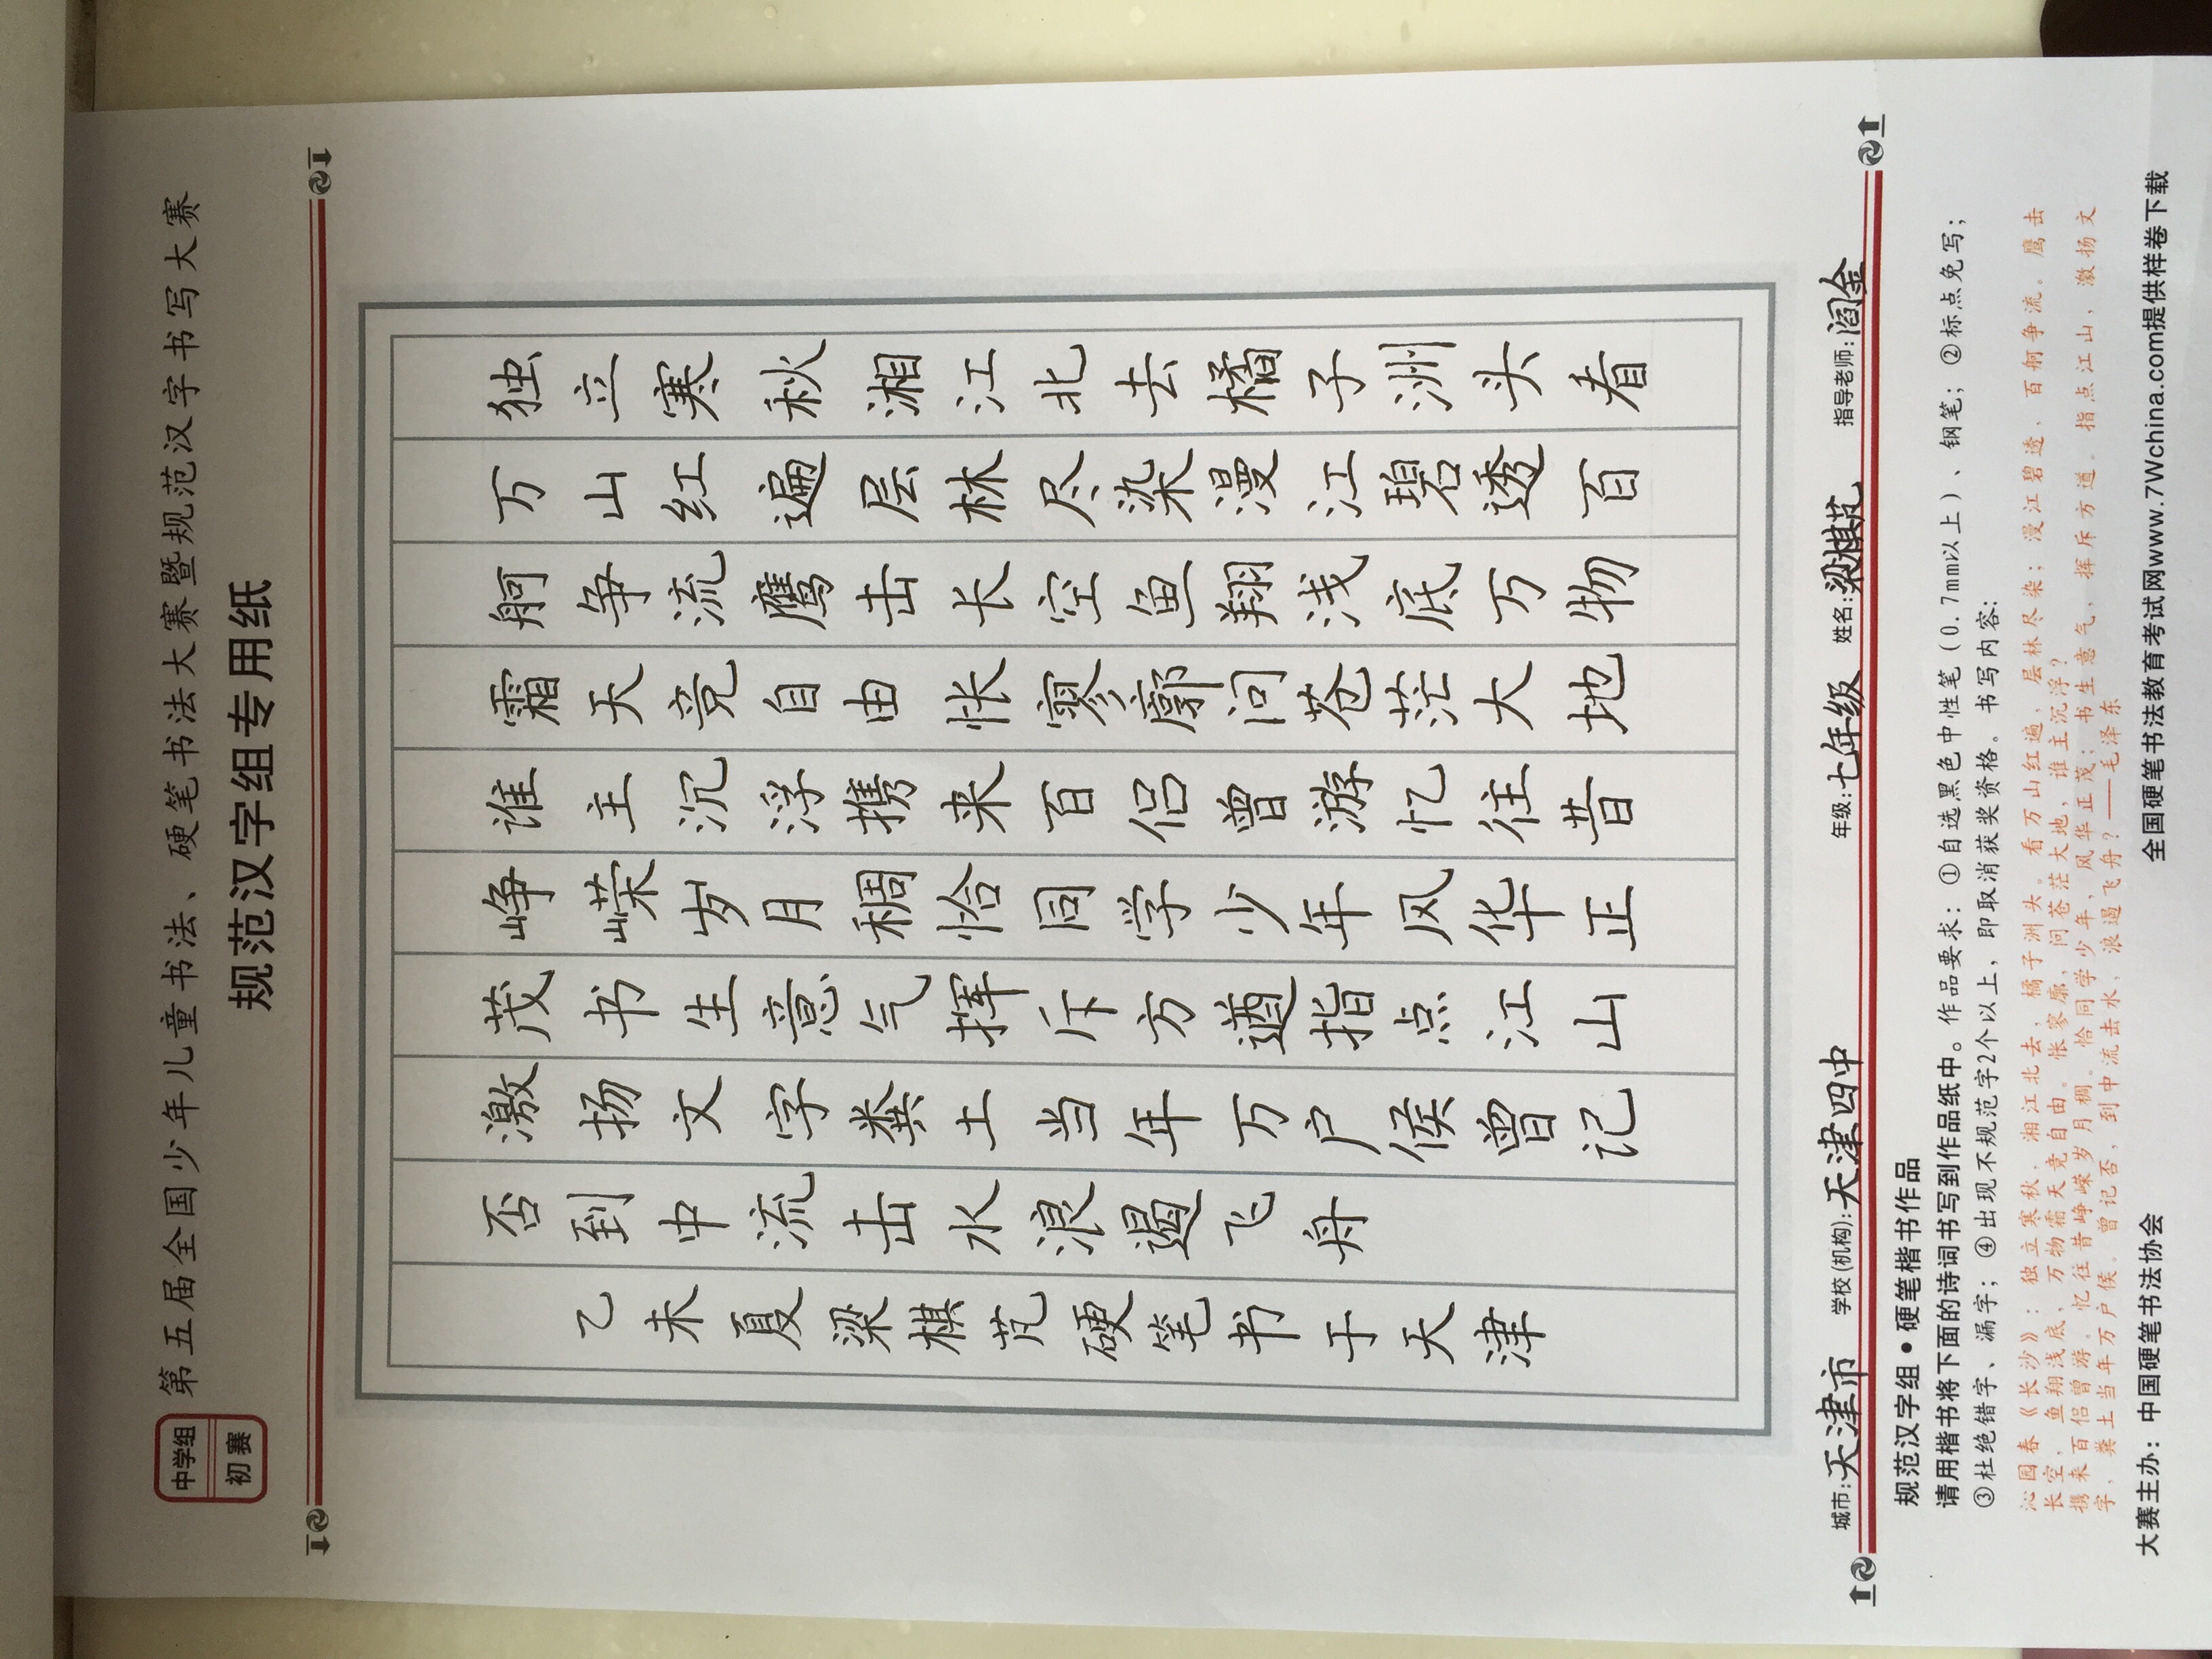 中学组
初赛
第五届全国少年儿童书法、硬笔书法大赛暨规范汉字书写大赛
规范汉字组专用纸
独立寒秋湘江北去橘子洲头看
万山红遍层林尽染漫江碧透百
舸争流鹰击长空鱼翔浅底万物
霜天竞自由怅寥廓问苍茫大地
谁主沉浮携来百侣曾游忆往昔
峥嵘岁月稠恰同学少年风华正
茂书生意气挥斥方遒指点江山
激扬文字粪土当年万户侯曾记
否到中流击水浪遏飞舟
乙未夏梁棋芃硬笔书于天津
城市:天津市 学校(机构):天津四中 年级:七年级 姓名:梁棋芃 指导老师:阎金
规范汉字组•硬笔楷书作品
请用楷书将下面的诗词书写到作品纸中。作品要求:①自选黑色中性笔(0.7mm以上)、钢笔;②标点免写;
③杜绝错字、漏字;④出现不规范字2个以上,即取消获奖资格。书写内容:
沁园春《长沙》:独立寒秋,湘江北去,橘子洲头。看万山红遍,层林尽染;漫江碧透,百舸争流。鹰击
长空,鱼翔浅底,万物霜天竞自由。怅寥廓,问苍茫大地,谁主沉浮?
携来百侣曾游。忆往昔峥嵘岁月稠。恰同学少年,风华正茂;书生意气,挥斥方遒。指点江山,激扬文
字,粪土当年万户侯。曾记否,到中流击水,浪遏飞舟?——毛泽东
大赛主办:中国硬笔书法协会 全国硬笔书法教育考试网www.7Wchina.com提供样卷下载